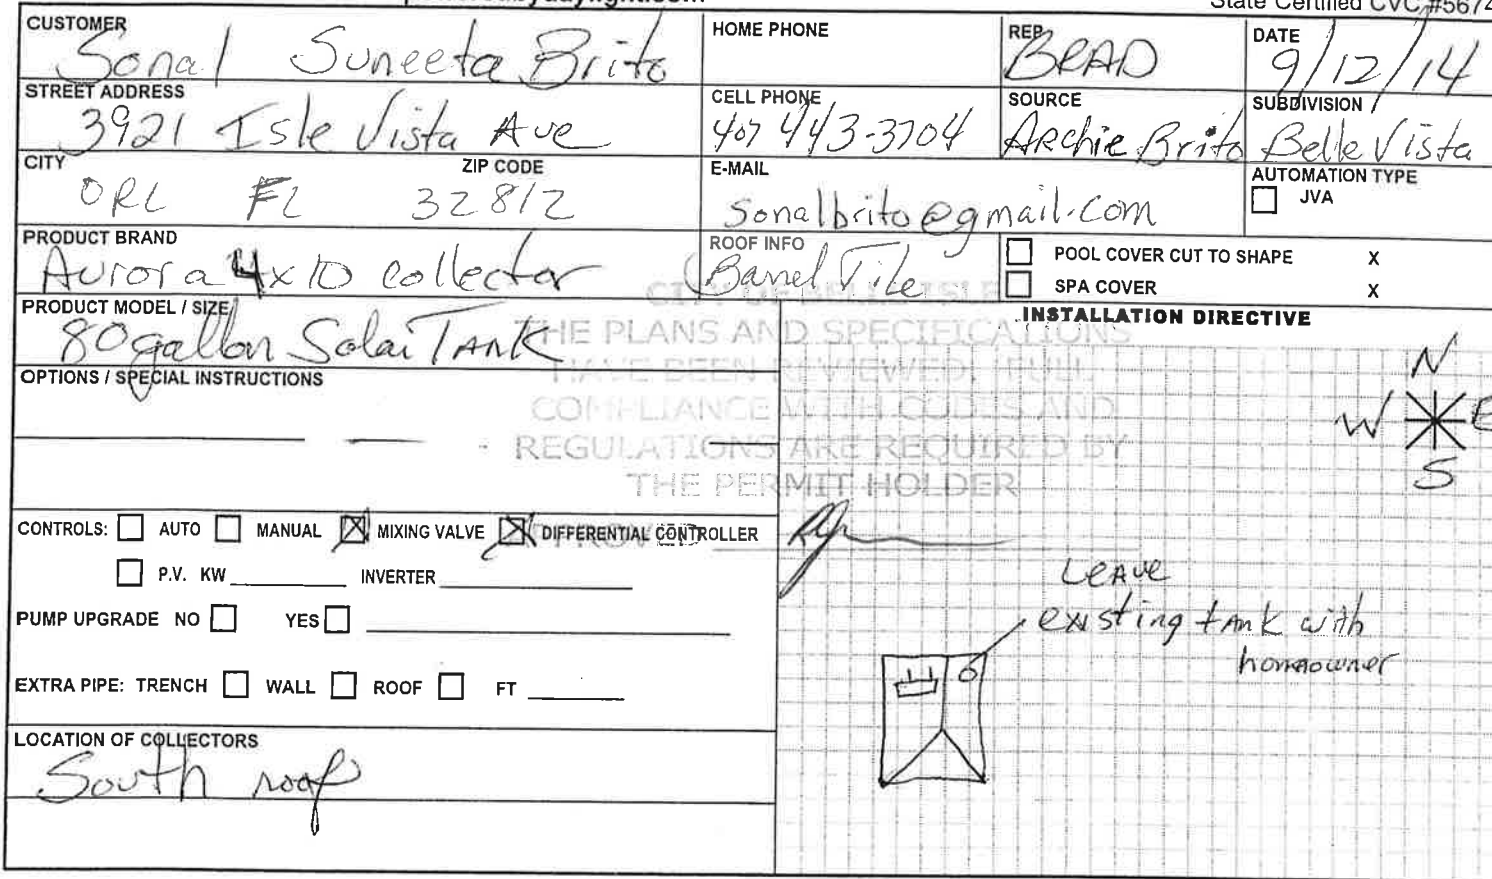 State Certified CVC #5674
CUSTOMER Sonal Suneeta Brito
HOME PHONE
REP BRAD
DATE 9/12/14
STREET ADDRESS 3921 Isle Vista Ave
CELL PHONE 407 443-3704
SOURCE Archie Brito
SUBDIVISION Belle Vista
CITY ORL FL
ZIP CODE 32812
E-MAIL sonalbrito@gmail.com
AUTOMATION TYPE
JVA
PRODUCT BRAND Aurora 4x10 collector
ROOF INFO Barrel Tile
POOL COVER CUT TO SHAPE X
SPA COVER X
PRODUCT MODEL / SIZE 80gallon Solar TANK
INSTALLATION DIRECTIVE
CITY OF BELLE ISLE
THE PLANS AND SPECIFICATIONS
HAVE BEEN REVIEWED. FULL
COMPLIANCE WITH CODES AND
REGULATIONS ARE REQUIRED BY
THE PERMIT HOLDER
APPROVED
OPTIONS / SPECIAL INSTRUCTIONS
N
W E
S
CONTROLS: AUTO MANUAL MIXING VALVE DIFFERENTIAL CONTROLLER
P.V. KW INVERTER
PUMP UPGRADE NO YES
EXTRA PIPE: TRENCH WALL ROOF FT
LEAVE
existing tank with
homeowner
LOCATION OF COLLECTORS
South roof